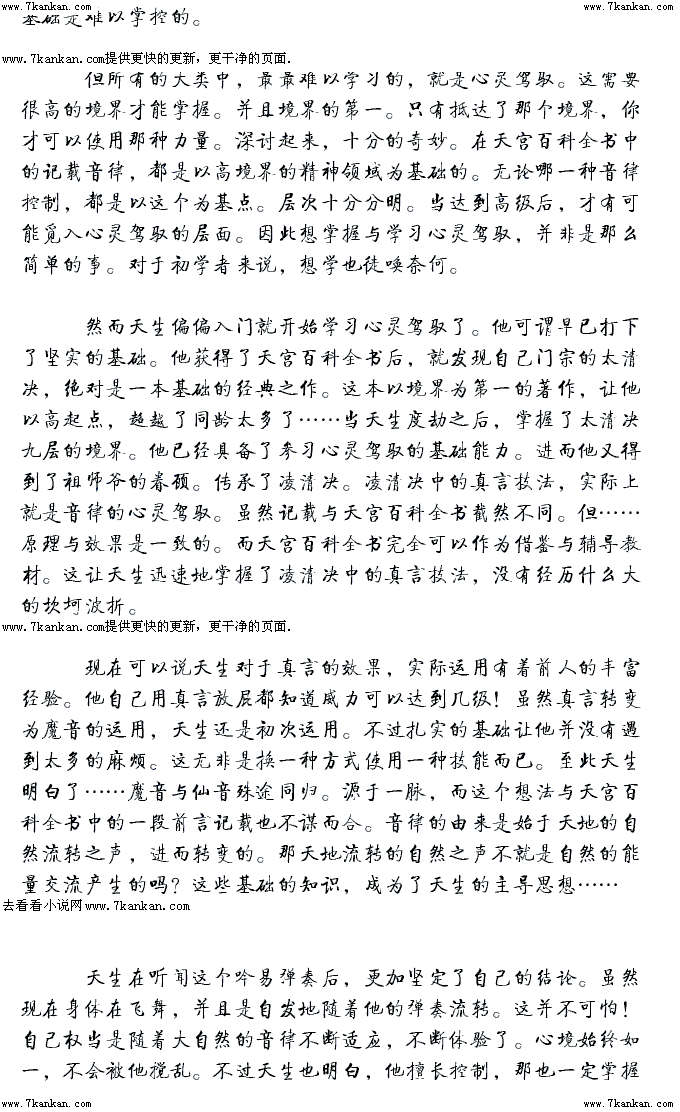 www.7kankan.com www.7kankan.com
基础是难以掌控的。
www.7kankan.com提供更快的更新，更干净的页面.
但所有的大类中，最最难以学习的，就是心灵驾驭。这需要
很高的境界才能掌握。并且境界的第一。只有抵达了那个境界，你
才可以使用那种力量。深讨起来，十分的奇妙。在天宫百科全书中
的记载音律，都是以高境界的精神领域为基础的。无论哪一种音律
控制，都是以这个为基点。层次十分分明。当达到高级后，才有可
能觅入心灵驾驭的层面。因此想掌握与学习心灵驾驭，并非是那么
简单的事。对于初学者来说，想学也徒唤奈何。
然而天生偏偏入门就开始学习心灵驾驭了。他可谓早已打下
了坚实的基础。他获得了天宫百科全书后，就发现自己门宗的太清
决，绝对是一本基础的经典之作。这本以境界为第一的著作，让他
以高起点，超越了同龄太多了……当天生度劫之后，掌握了太清决
九层的境界。他已经具备了参习心灵驾驭的基础能力。进而他又得
到了祖师爷的眷顾。传承了凌清决。凌清决中的真言技法，实际上
就是音律的心灵驾驭。虽然记载与天宫百科全书截然不同。但……
原理与效果是一致的。而天宫百科全书完全可以作为借鉴与辅导教
材。这让天生迅速地掌握了凌清决中的真言技法，没有经历什么大
的坎坷波折。
www.7kankan.com提供更快的更新，更干净的页面.
现在可以说天生对于真言的效果，实际运用有着前人的丰富
经验。他自己用真言放屁都知道威力可以达到几级！虽然真言转变
为魔音的运用，天生还是初次运用。不过扎实的基础让他并没有遇
到太多的麻烦。这无非是换一种方式使用一种技能而已。至此天生
明白了……魔音与仙音殊途同归。源于一脉，而这个想法与天宫百
科全书中的一段前言记载也不谋而合。音律的由来是始于天地的自
然流转之声，进而转变的。那天地流转的自然之声不就是自然的能
量交流产生的吗？这些基础的知识，成为了天生的主导思想……
去看看小说网www.7kankan.com
天生在听闻这个吟易弹奏后，更加坚定了自己的结论。虽然
现在身体在飞舞，并且是自发地随着他的弹奏流转。这并不可怕！
自己权当是随着大自然的音律不断适应，不断体验了。心境始终如
一，不会被他搅乱。不过天生也明白，他擅长控制，那也一定掌握
www.7kankan.com www.7kankan.com